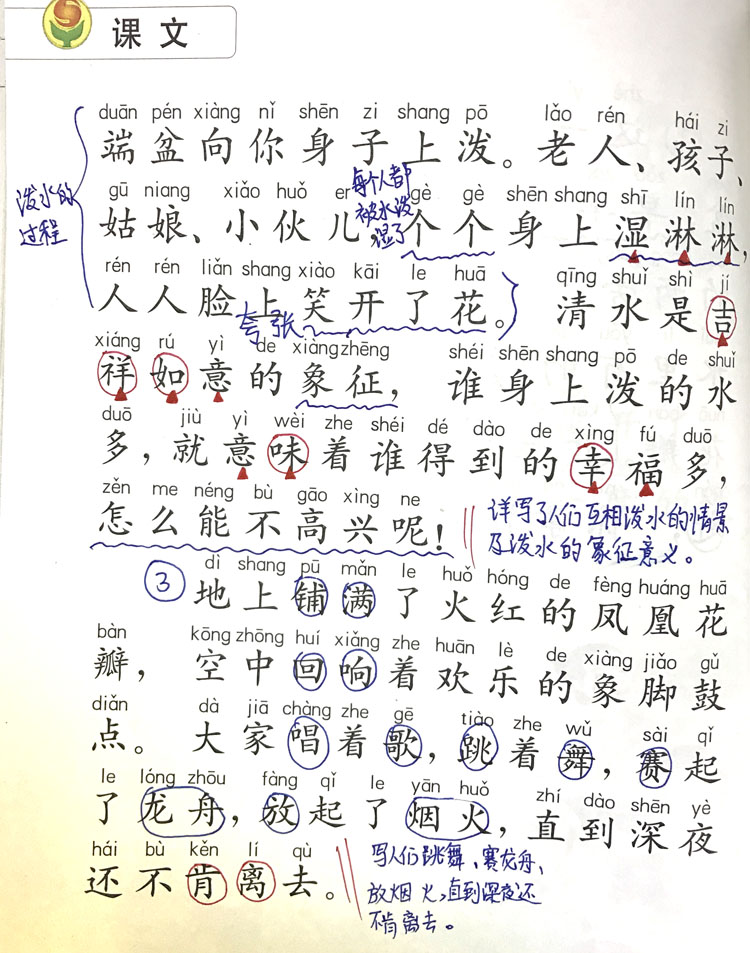 课文
duān pén xiàng nǐ shēn zi shang pō lǎo rén hái zi
端盆向你身子上泼。老人、孩子、
泼水的
过程
每个人都
被水泼
湿了
gū niang xiǎo huǒ er gè gè shēn shang shī lín lín
姑娘、小伙儿,个个身上湿淋淋,
rén rén liǎn shang xiào kāi le huā qīng shuǐ shì jí
人人脸上笑开了花。清水是吉
夸张
xiáng rú yì de xiàng zhēng shéi shēn shang pō de shuǐ
祥如意的象征,谁身上泼的水
duō jiù yì wèi zhe shéi dé dào de xìng fú duō
多,就意味着谁得到的幸福多,
zěn me néng bù gāo xìng ne
怎么能不高兴呢!
详写了人们互相泼水的情景
及泼水的象征意义。
③
dì shang pū mǎn le huǒ hóng de fèng huáng huā
地上铺满了火红的凤凰花
bàn kōng zhōng huí xiǎng zhe huān lè de xiàng jiǎo gǔ
瓣,空中回响着欢乐的象脚鼓
diǎn dà jiā chàng zhe gē tiào zhe wǔ sài qǐ
点。大家唱着歌,跳着舞,赛起
le lóng zhōu fàng qǐ le yān huǒ zhí dào shēn yè
了龙舟,放起了烟火,直到深夜
hái bù kěn lí qù
还不肯离去。
写人们跳舞、赛龙舟、
放烟火,直到深夜还
不肯离去。